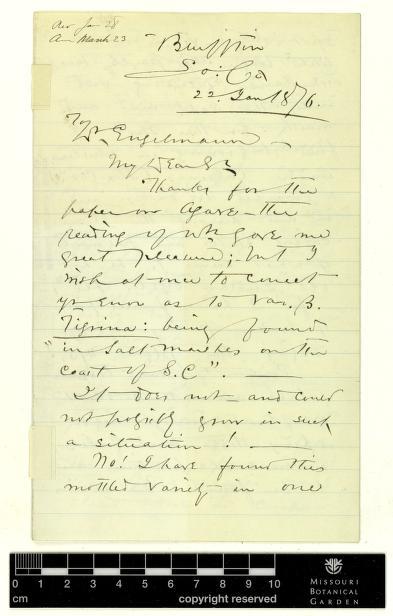 Rec Jan 28
Ans March 23
Bluffton
So: Ca
22 Jan 1876.
To Dr Engelmann
My Dear Sir
Thanks for the
paper on Agave - the
reading of wh gave me
great pleasure; but I
wish at once to correct
yr error as to Var. B.
Tigrina: being found
"in Salt marshes on the
coast of S.C".
It does not - and could
not possibly grow in such
a situation!
No! I have found this
mottled variety in one
0 1 2 3 4 5 6 7 8 9 10
cm copyright reserved
MISSOURI
BOTANICAL
GARDEN